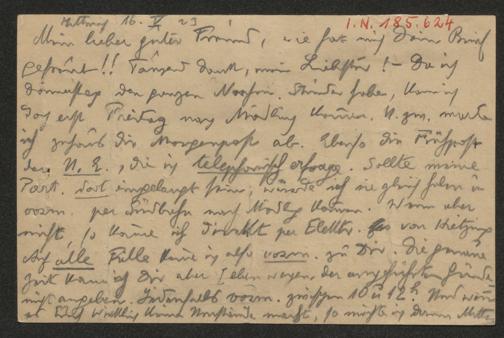 Mittwoch 16. V 23 I.N. 185.624
Mein lieber guter Freund, wie hat mich Dein Brief
gefreut!! Tausend Dank, mein Liebster! – Da ich
Donnerstag den ganzen Stunden habe, kann ich
erst Freitag nach Mödling kommen. U. zw. warte
ich zuhaus die Morgenpost ab. Ebenso die Frühpost
der U. E., die ich telephonisch erfrage. Sollte meine
Part. dort eingelangt sein, würde ich sie gleich holen u.
vorm. per Südbahn nach Mödling kommen. Wenn aber
nicht, so komme ich direkt per Elektr. von Hietzing
Auf alle Fälle komme ich also vorm. zu Dir. Die genaue
Zeit kann ich Dir aber eben wegen der angeführten Gründe
nicht angeben. Jedenfalls vorm. zwischen 10 u 12 h. Und wenn
es Dir wirklich keine Umstände macht, so möchte ich Deinem